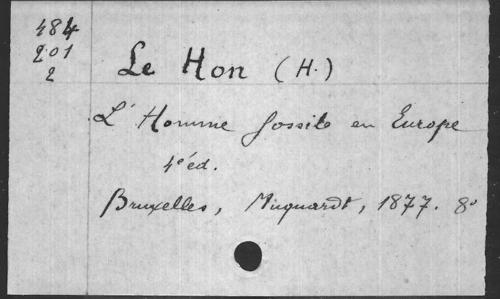 484
201
2
Le Hon (H.)
L'Homme fossile en Europe
4e éd.
Bruxelles, Muquardt, 1877. 8°